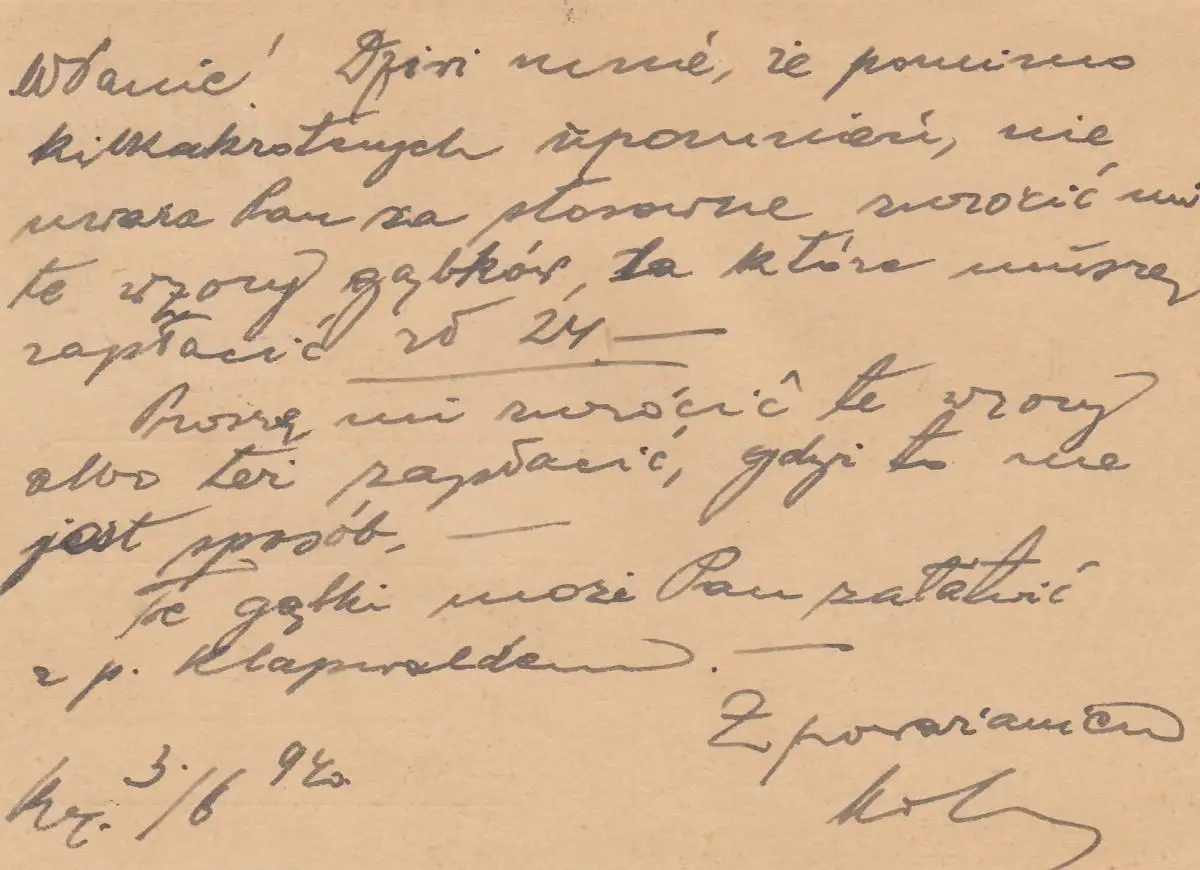 WPanie! Dziwi mnie, że pomimo
kilkakrotnych upomnień, nie
uważa Pan za stosowne zwrócić mi
te wzory gąbków, za które muszę
zapłacić zł 24.—
Proszę mi zwrócić te wzory
albo też zapłacić, gdyż to nie
jest sposób. —
Te gąbki może Pan załatwić
z p. Klapwaldem. —
Z poważaniem
Kr. 3./6